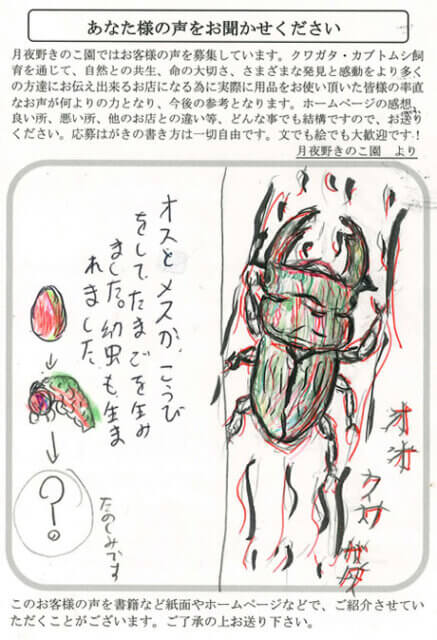 あなた様の声をお聞かせください
月夜野きのこ園ではお客様の声を募集しています。クワガタ・カブトムシ飼
育を通じて、自然との共生、命の大切さ、さまざまな発見と感動をより多く
の方達にお伝え出来るお店になる為に実際に用品をお使い頂いた皆様の率直
なお声が何よりの力となり、今後の参考となります。ホームページの感想、
良い所、悪い所、他のお店との違い等、どんな事でも結構ですので、お送り
ください。応募はがきの書き方は一切自由です。文でも絵でも大歓迎です！
月夜野きのこ園　より
オスとメスが、こうび
をして、たまごを生み
ました。幼虫も生ま
れました。
？
たのしみです
オオ
クワ
ガタ
このお客様の声を書籍など紙面やホームページなどで、ご紹介させてい
ただくことがございます。ご了承の上お送り下さい。